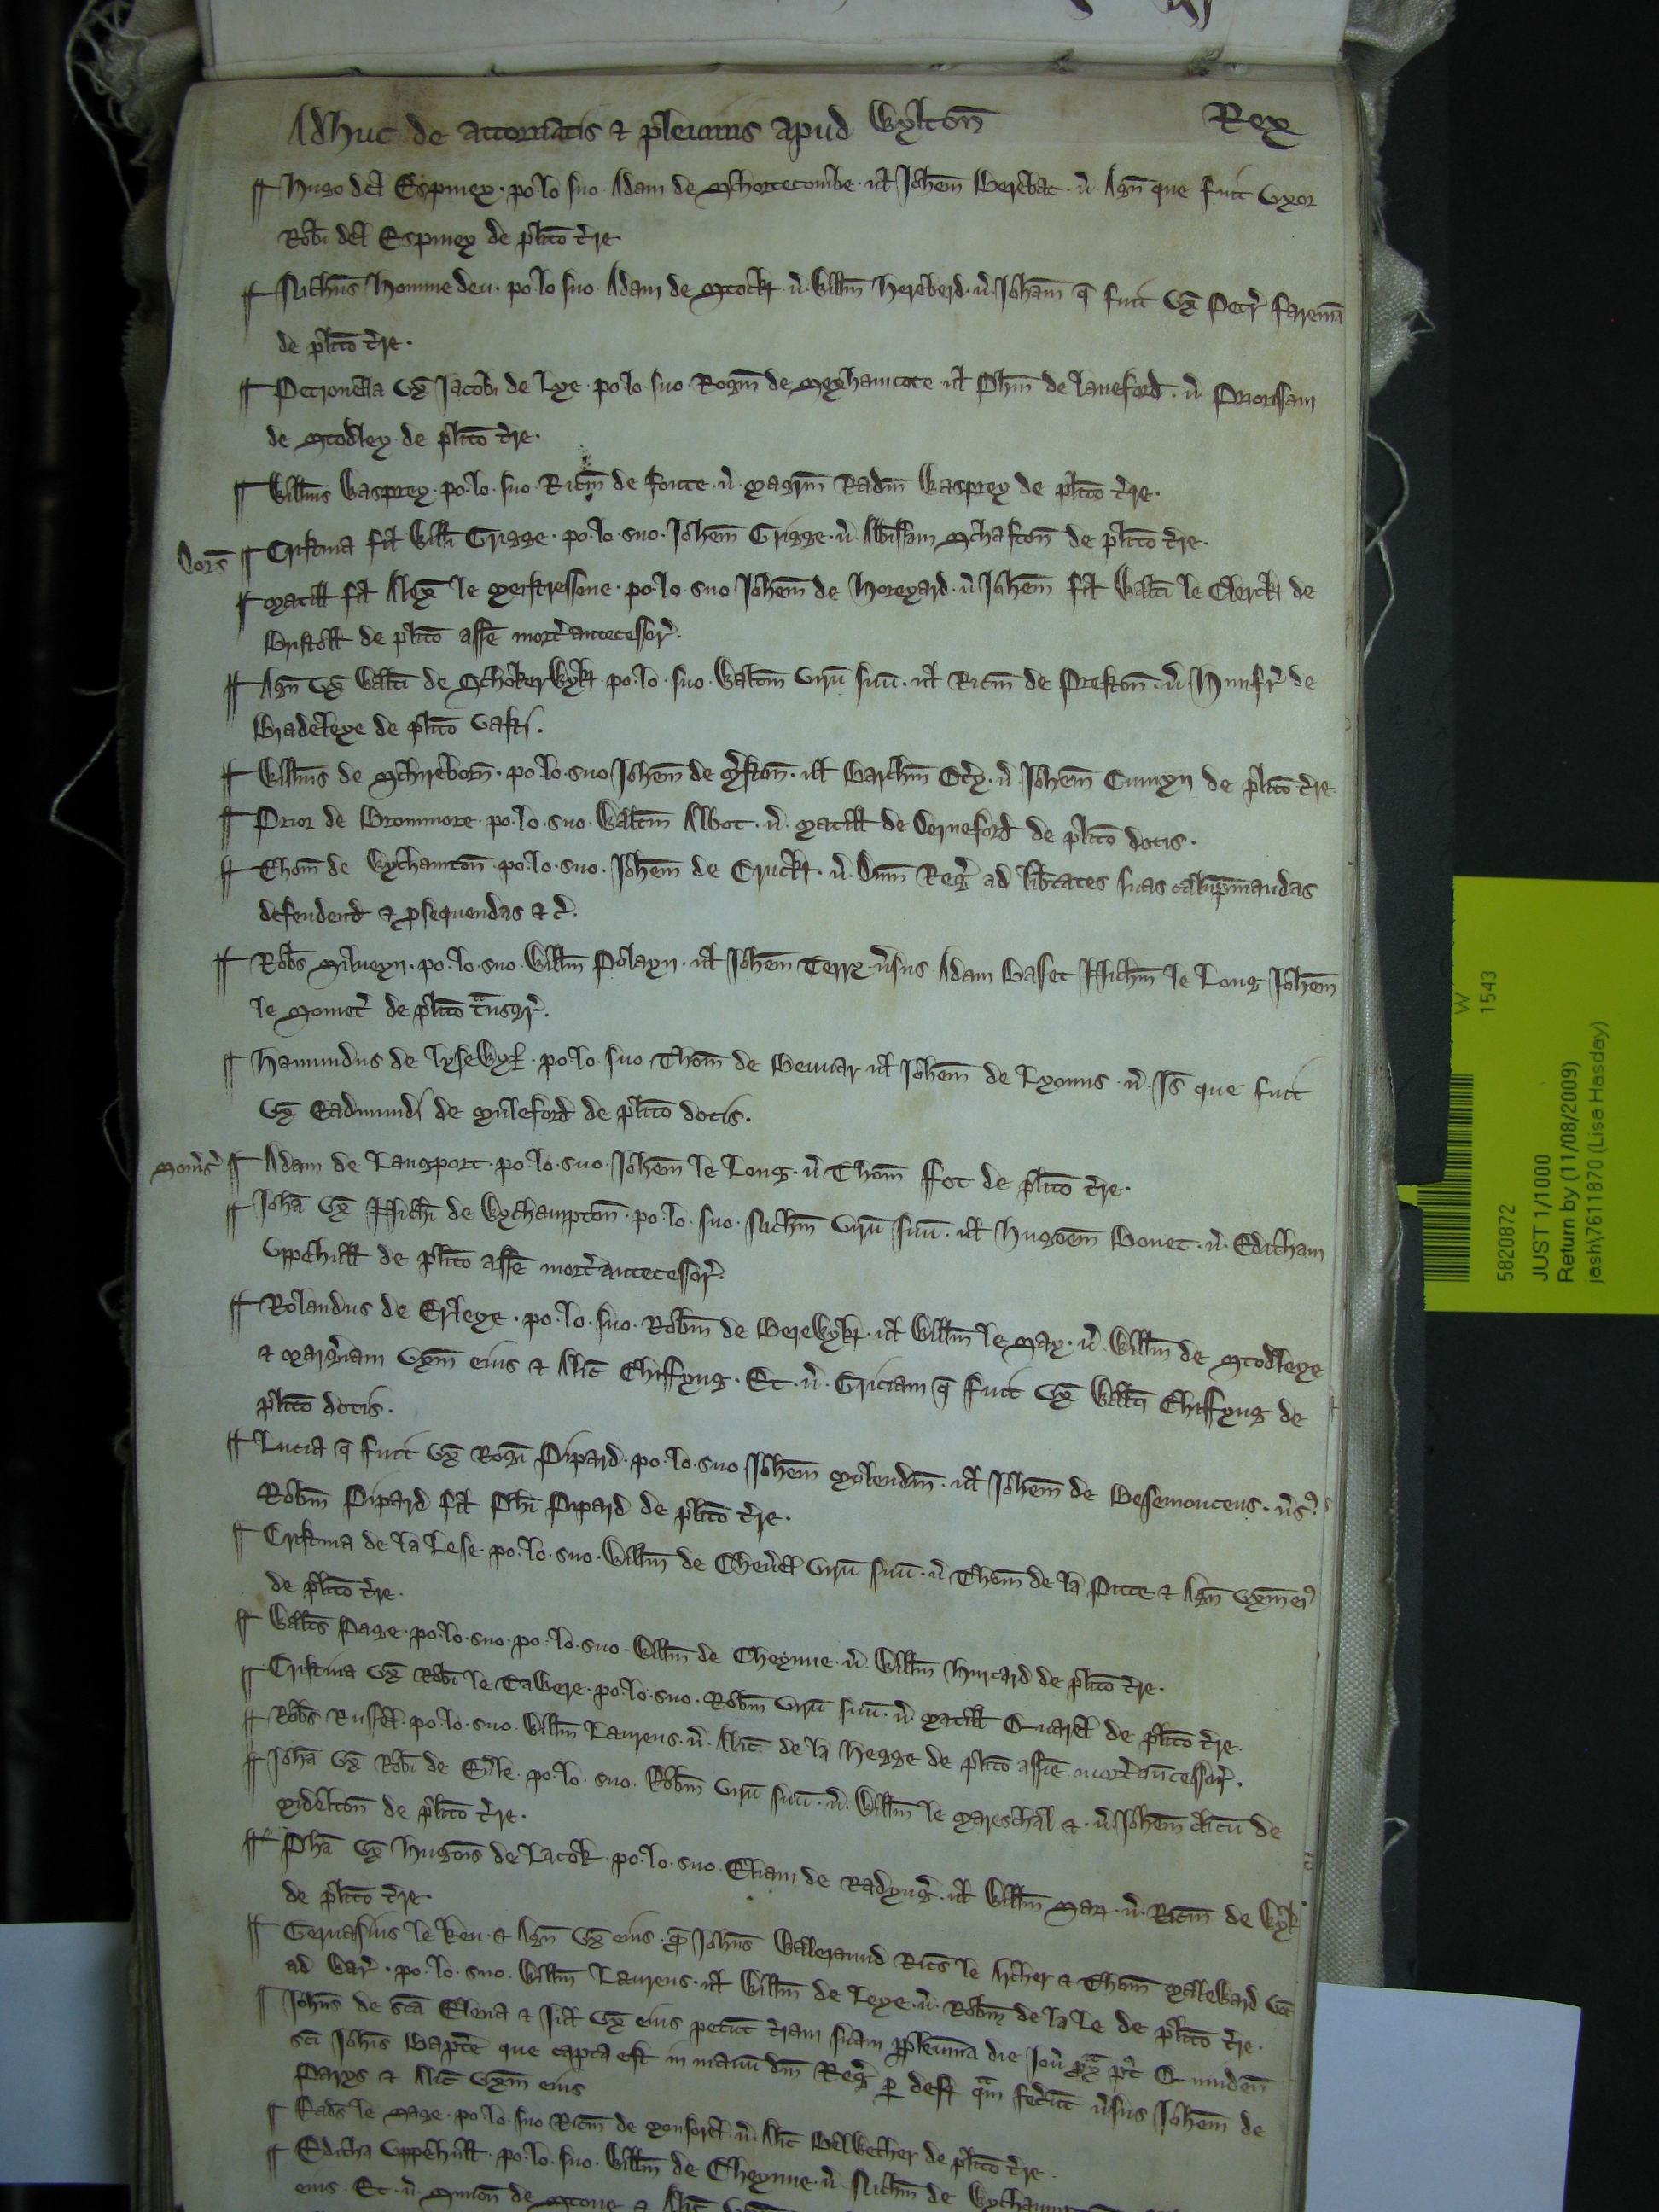 Adhuc de attornatis & pleuinis apud Wylton̄ Rex
Hugo del Espiney · po · lo suo · Adam de Schortecombe · ul̃ Joh̄em Berebat · v̓ · Agn̄ que fuit Uxor
Rob̄i del Espiney de pl̄ito t̓re
Nich̄us Homme deu · po · lo suo · Adam de Stock̃ · v̓ · Will̄m Hereberd · v̓ · Joh̄am q̄ fuit Ux̄ Petr̓ Farema̅
de pl̄ito t̓re ·
Petronella Ux̄ Jacobi de Lye · po · lo · suo · Rog̃m de Meyhamtote ul̃ Ph̄m de Laneford · v̓ · Priorissam
de Stodley de pl̄ito t̓re ·
Will̄ms Wasprey · po · lo · suo · Ric̄m de Fonte · v̓ · Mag̃m Rad̄m Wasprey de pl̄ito t̓re ·
Dors̄ Cristina fil̃ Will̄i Grigge · po · lo · suo · Joh̄em Grigge · v̓ · Abb̄issam Schafton̄ de pl̄ito t̓re ·
Matill̃ fil̃ Alex̄ le Meistressone · po · lo · suo Joh̄em de Horeyard · v̓ Joh̄em fil̃ Walt̄i le Clerck̃ de
Bristoll̃ de pl̄ito ass̄e mort̓ antecessor̓ ·
Agn̄ Ux̄ Walt̄i de Schokerwyk̃ · po · lo · suo · Walt̄m virū suū · ul̃ Ric̄m de Preston̄ · v̓ Hunfr̓ de
Bradeleye de pl̄ito vasti ·
Will̄ms de Schireborn̄ · po · lo · suo Joh̄em de · ul̃ Barth̄m Oty · v̓ · Joh̄em Cumyn de pl̄ito t̓re
Prior de Brommore · po · lo · suo · Walt̄m Abbot · v̓ · Matill̃ de Derneford de pl̄ito dotis ·
Thom̄ de Wychamton̄ · po · lo · suo · Joh̄em de Cruck̃ · v̓ · Dn̄m Reg̓ ad lib̄tates suas calupm̄andas
defendend̃ & p̱sequendas & c̓ ·
Rob̄s Milueyn · po · lo · suo · Will̄m Polayn · ul̃ Joh̄em Terry v̓sus Adam Baset Nich̄m le Long Joh̄em
le Somet̓ de pl̄ito t̄nsgr̓ ·
Hamundus de Lysewyk̃ · po · lo · suo Thom̄ de Beuuar ul̃ Joh̄em de Lyouns · v̓ · Is̄ que fuit
Ux̄ Eadmundi de Muleford de pl̄ito dotis ·
Som̓s̓ Adam de Langport · po · lo · suo · Joh̄em le Long · v̓ Thom̄ Fot de pl̄ito t̓re ·
Joh̄a Ux̄ Nich̄i de Wychampton̄ · po · lo · suo · Nich̄m virū suū · ul̃ Hugōem Bouet · v̓ · Editham
Uppehull̃ de pl̄ito ass̄e mort̓ antecessor̓ ·
Rolandus de Erleye · po · lo · suo · Rob̄m de Berewyk̃ · ul̃ Will̄m le Max · v̓ Will̄m de Stodleye
& Marg̓iam Ux̄m eius & Alic̄ Chiffyng · Et · v̓ · Griciam q̄ fuit Ux̄ Walt̄i Chiffyng de
pl̄ito dotis ·
Lucia q̄ fuit Ux̄ Rog̃i Pipard · po · lo · suo Joh̄em · ul̃ Joh̄em de Besemoutens · v̓s̓
Rob̄m Pipard fil̃ Ph̄i Pipard de pl̄ito t̓re ·
Cristina de la Lese · po · lo · suo · Will̄m de Chev̓el virū suū · v̓ Thom̄ de la Putte & Agn̄ Ux̄m ei̓
de pl̄ito t̓re ·
Walt̄s Page · po · lo · suo · po · lo · suo · Will̄m de Cheynne · v̓ · Will̄m Hurtard de pl̄ito t̓re ·
Cristina Ux̄ Rob̄i le Tawere · po · lo · suo · Rob̄m virū suū · v̓ Matill̃ Quarel de pl̄ito t̓re ·
Rob̄s Russel · po · lo · suo · Will̄m Laurens · v̓ · Alic̄ de la Hegge de pl̄ito ass̄e mort̓ an̄cessor̓ ·
Joh̄a Ux̄ Rob̄i de · po · lo · suo · Rob̄m virū suū · v̓ · Will̄m le Mareschal & · v̓ Joh̄em dictū de
Midelton̄ de pl̄ito t̓re ·
Ph̄a Ux̄ Hugōis de Lacok · po · lo · suo · Eliam de Radyng̓ · ul̃ Will̄m · v̓ · Ric̄m de Wyk̃
de pl̄ito t̓re ·
Geruasius le Keu · & Agn̄ Ux̄ eius · Joh̄nes Waleraund Ric̄s le Archer & Thom̄ Maleward voc̄
ad War̓ · po · lo · suo · Will̄m Laurens · ul̃ Will̄m de Leye · v̓ · Rob̄m de la Le de pl̄ito t̓re ·
Joh̄es de sc̄a Elena & Ux̄ eius petūt t̓ram suam die Jou̓ p̓x̄ p̓t Quinden̄
sc̄i Joh̄is Bapt̄e que capta est in manū dn̄i Reg̓ ꝑ def̃ q̄m fec̄ūt v̓sus Joh̄em de
Parys & Alic̄ Ux̄m eius
Rad̄s le Mage · po · lo · suo Ric̄m de · v̓ Alic̄ Belwether de pl̄ito t̓re ·
Editha Uppehull̃ · po · lo · suo · Will̄m de Cheynne · v̓ · Nich̄m de
eius · Et · v̓ · Simon̄ de & Alic̄
W
1543
5820872
JUST 1/1000
Return by (11/08/2009)
jash\7611870 (Lisa Hasday)